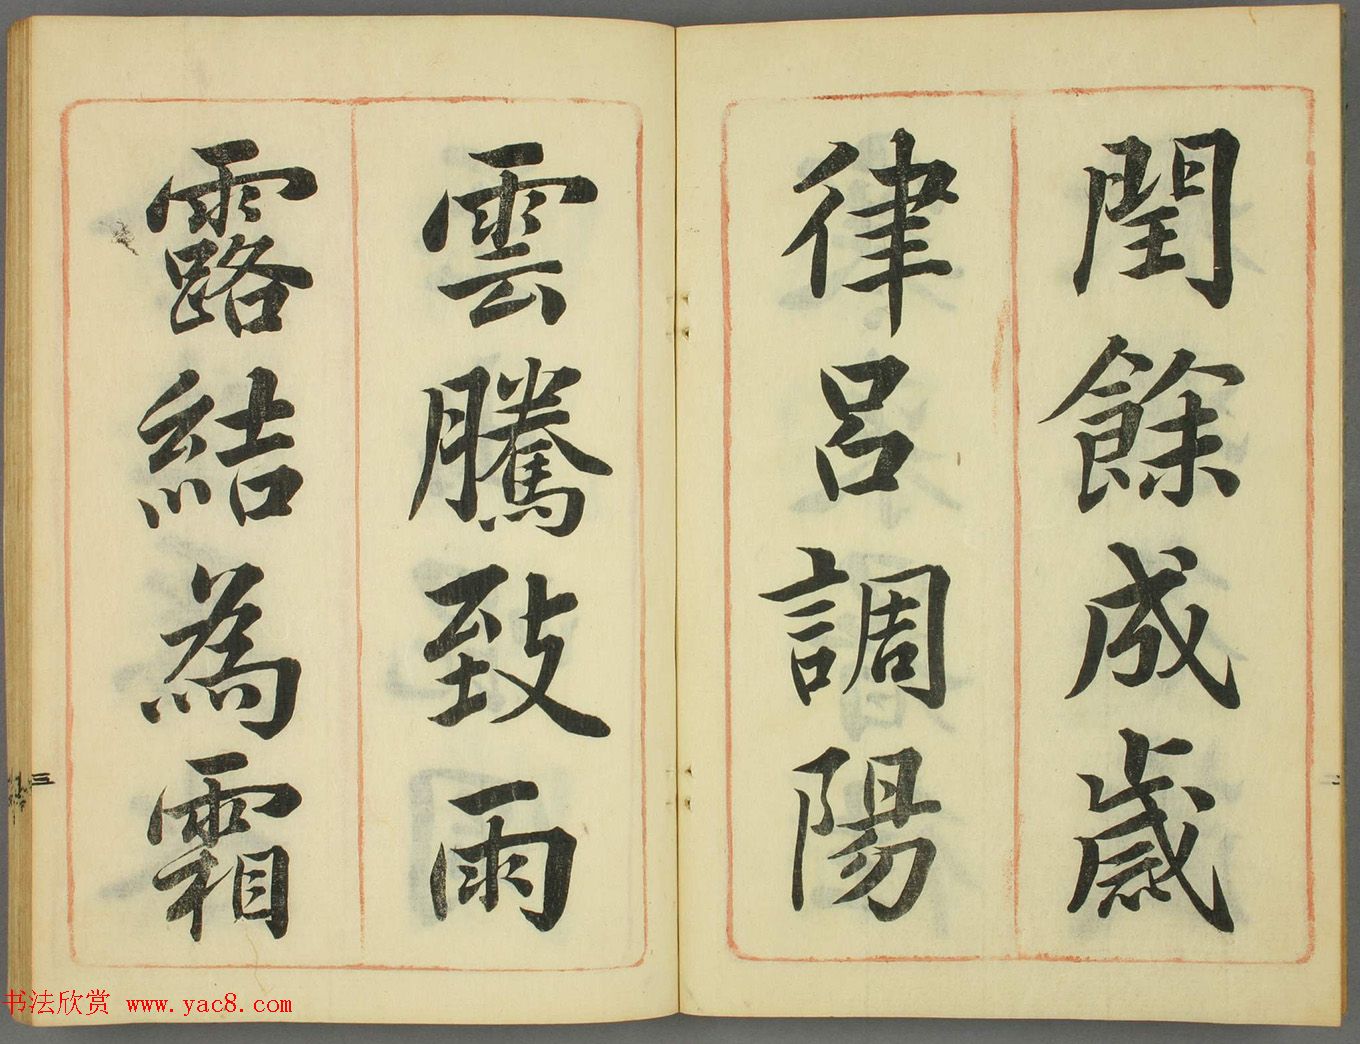 閏餘成歲
律呂調陽
雲騰致雨
露結為霜
三
二
书法欣赏 www.yac8.com